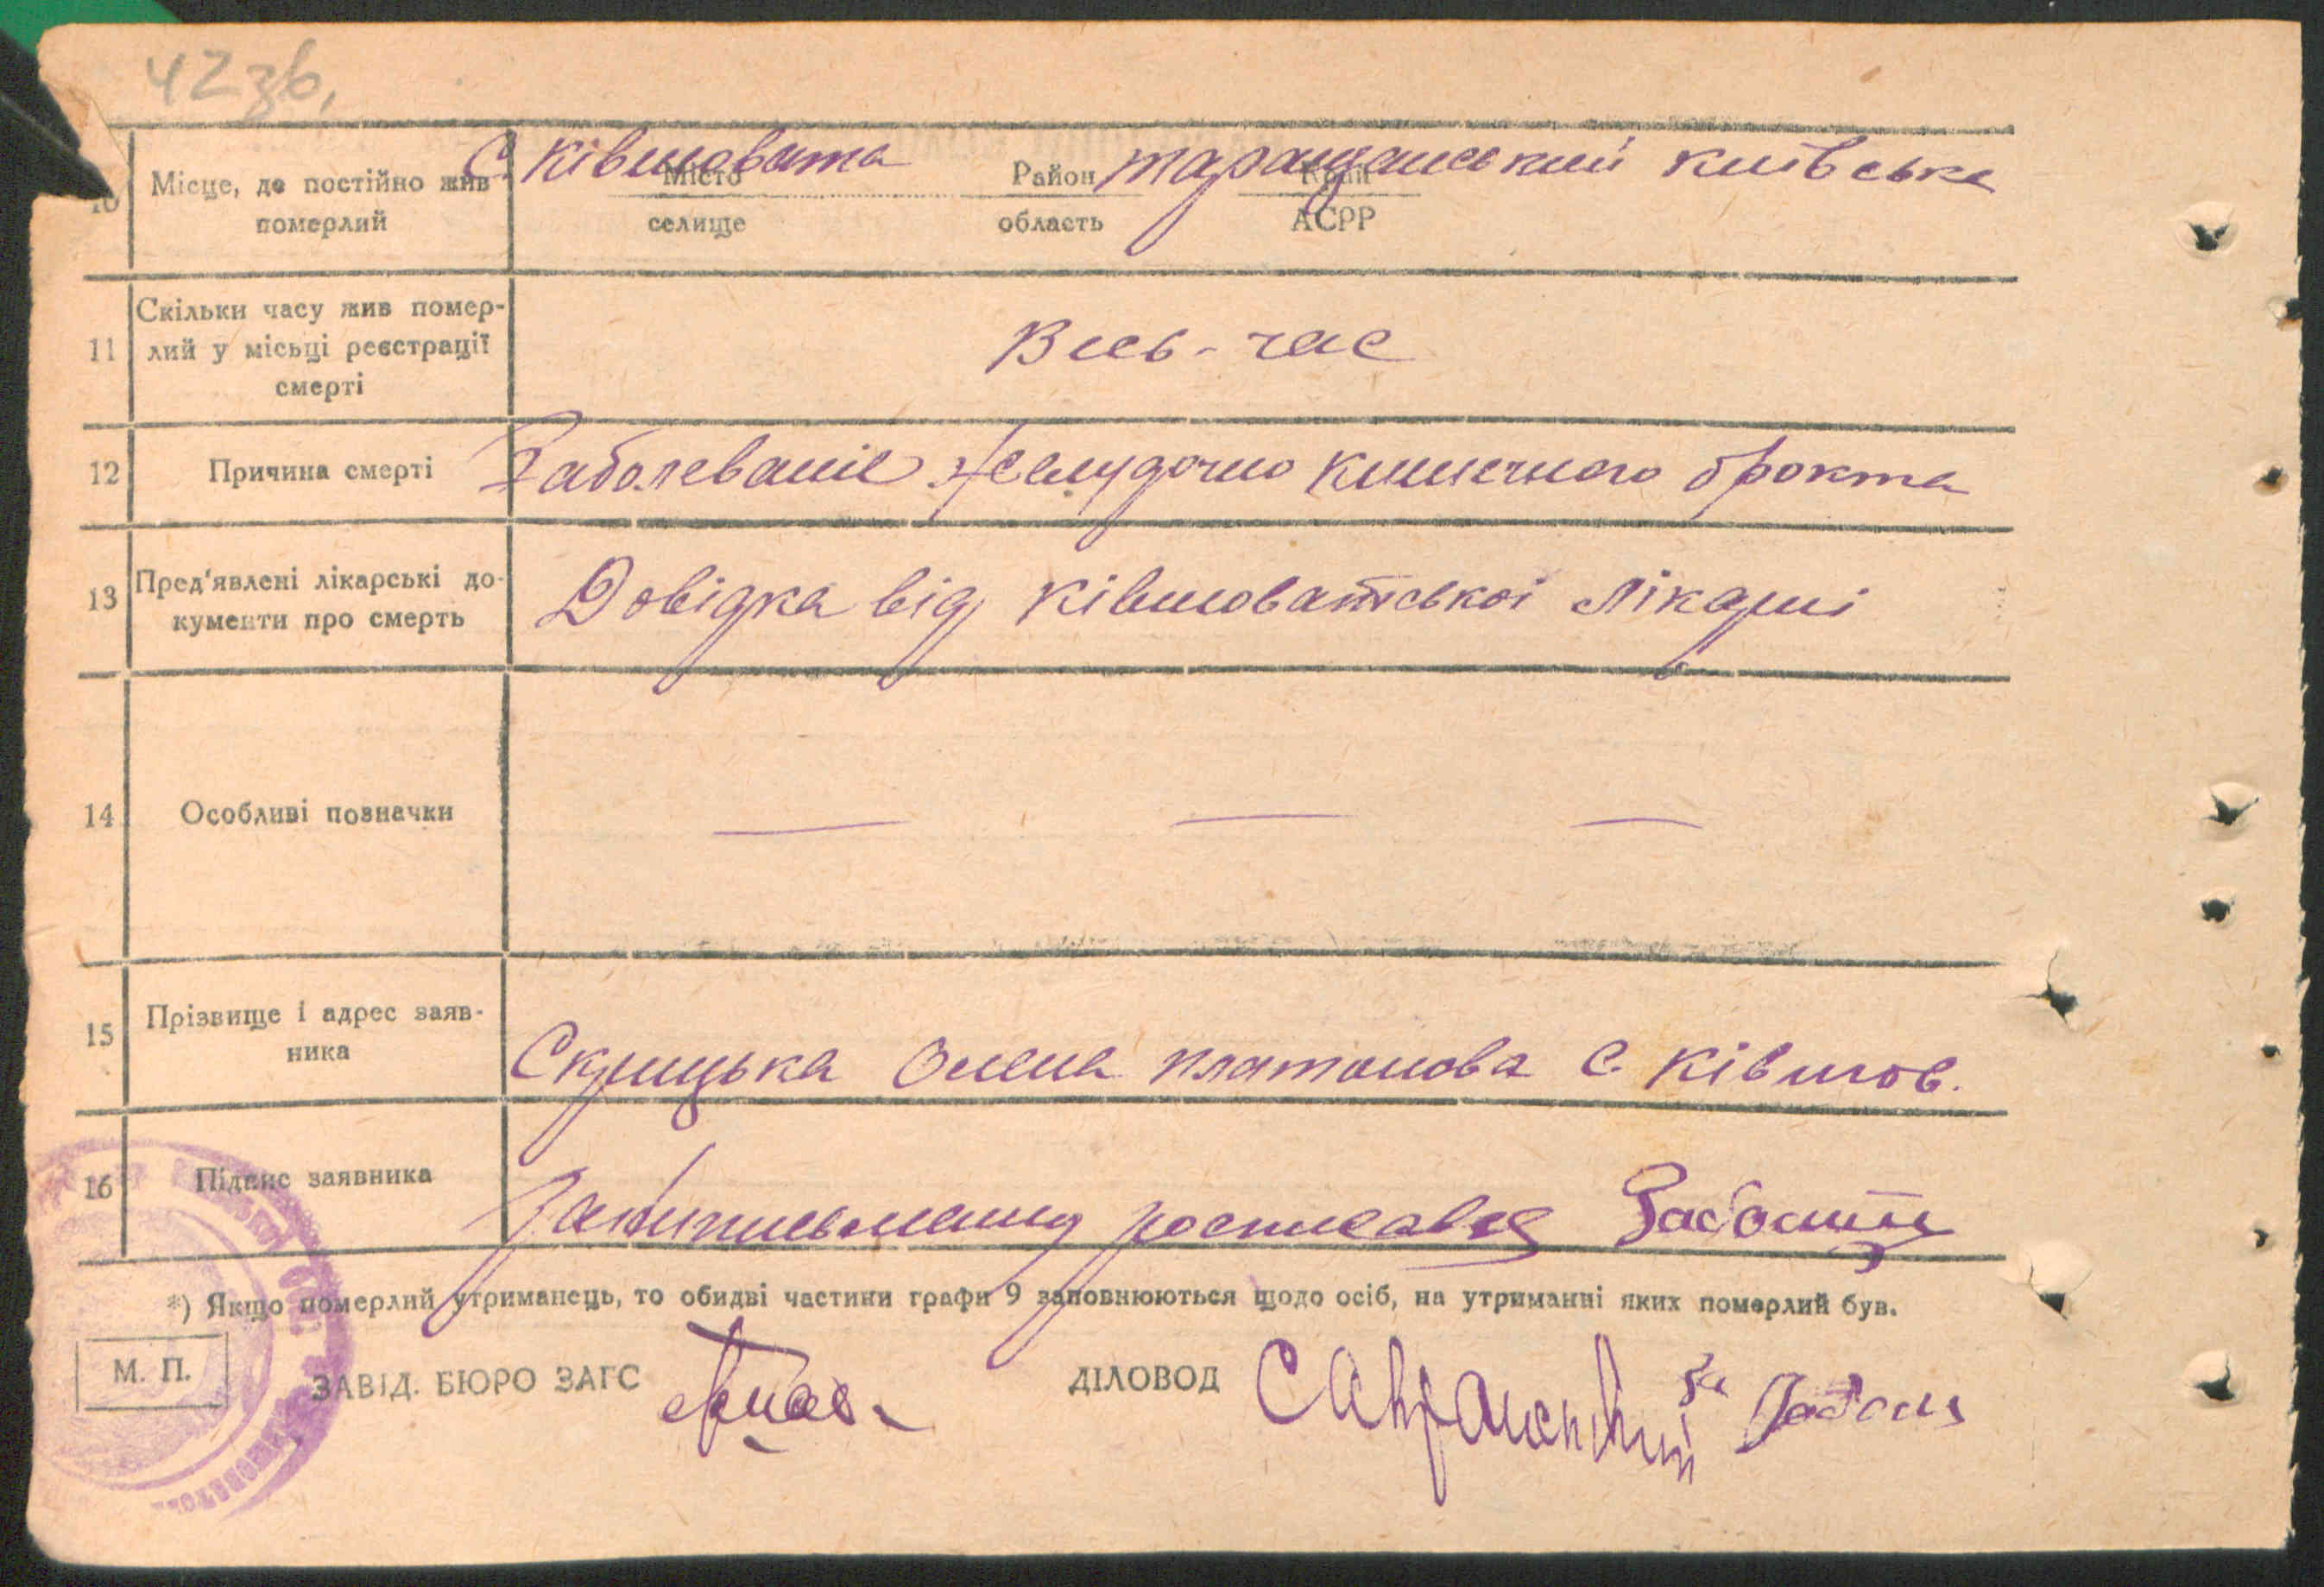 42зв.
10 Місце, де постійно жив померлий
с. Ківшовата Місто селище
Район область таращанський Край АСРР київська
11 Скільки часу жив помер-
лий у місьці реєстрації
смерті
Весь-час
12 Причина смерті
Заболеваніє желудочно кишечного тракта
13 Пред'явлені лікарські до-
кументи про смерть
Довідка від Ківшоватської лікарні
14 Особливі позначки
— — —
15 Прізвище і адрес заяв-
ника
Скрицька Олена платонова с. Ківшов.
16 Підпис заявника
За неписьменну росписався
*) Якщо померлий утриманець, то обидві частини графи 9 заповнюються щодо осіб, на утриманні яких померлий був.
М. П.
ЗАВІД. БЮРО ЗАГС
ДІЛОВОД